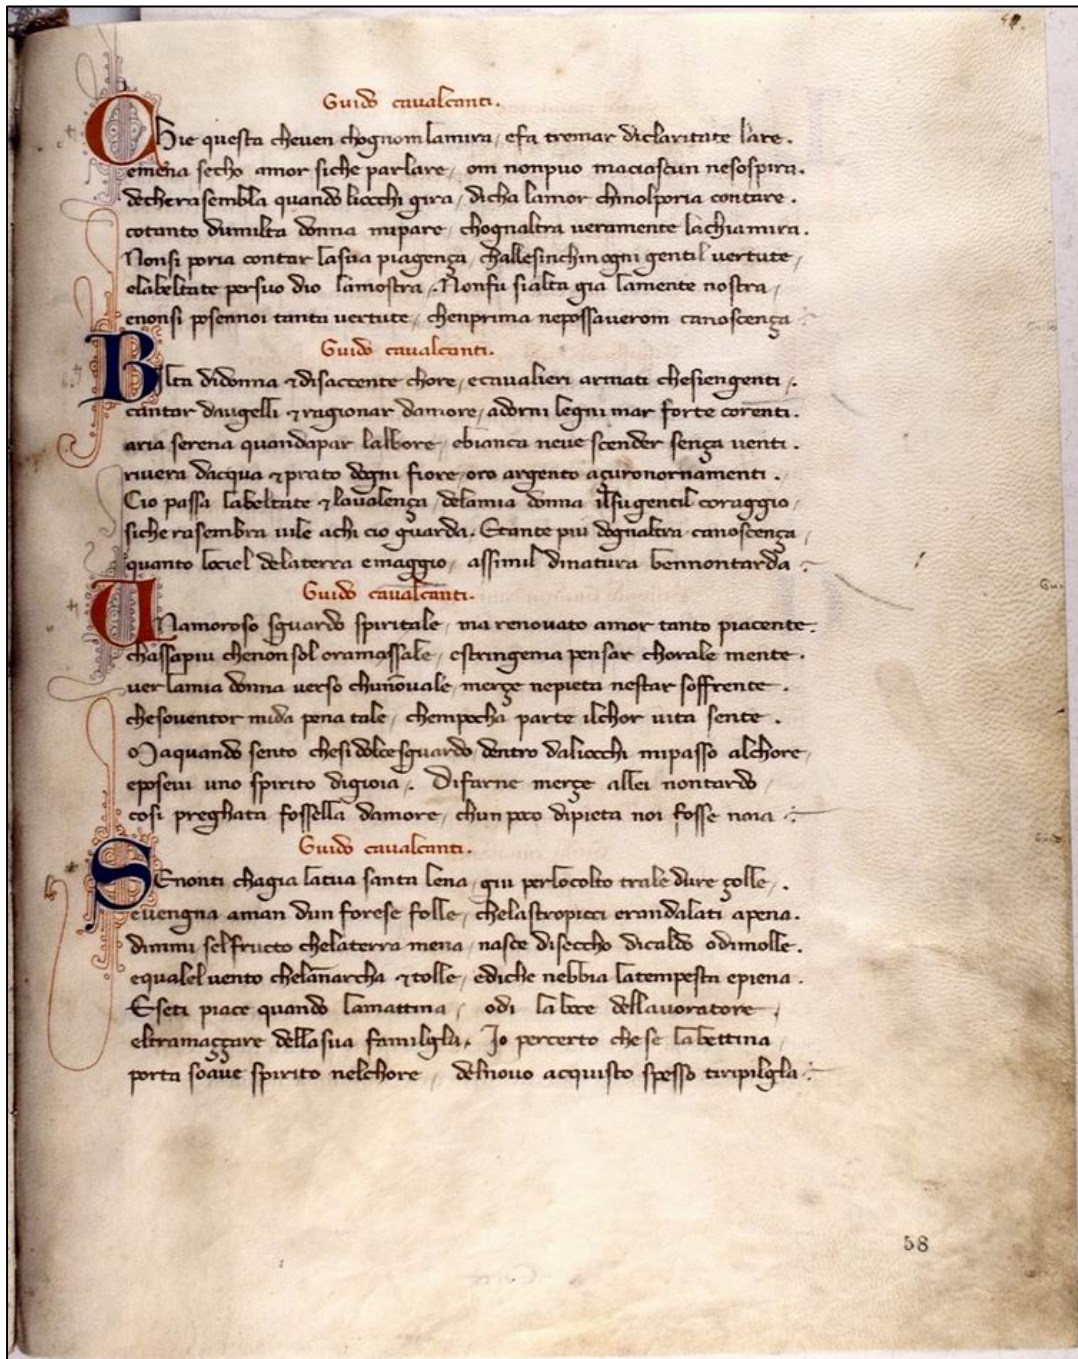 Guido cavalcanti.
Chie questa cheuen chognom lamira, efa tremar diclaritate lare.
emena secho amor siche parlare, om nonpuo maciascun nesospira.
decherasembla quando liocchi gira, dicha lamor chinolporia contare.
cotanto dumilta donna mipare, chognaltra ueramente lachiamira.
Nonsi poria contar lasua piagença, challesinchin ogni gentil uertute,
elabeltate persuo dio lamostra. Nonfu sialta gia lamente nostra,
enonsi posennoi tanta uertute, chenprima nepossauerom canoscença
Guido caualcanti.
Bilta didonna & disaccente chore, ecaualieri armati chesiengenti.
cantar daugelli & ragionar damore, adorni legni mar forte corenti.
aria serena quandapar lalbore, ebianca neue scender sença uenti.
riuera dacqua & prato dogni fiore, oro argento açuronornamenti.
Cio passa labeltate & laualença, delamia donna ilsugentil coraggio,
siche rasembra uile achi cio guarda. Etante piu dognaltra canoscença,
quanto lociel delaterra emaggio, assimil dinatura bennontarda
Guido caualcanti.
Unamoroso sguardo spiritale, ma renouato amor tanto piacente.
chassapiu chenonsol oramassale, estringema pensar chorale mente.
uer lamia donna uerso chunōuale, merçe nepieta nestar soffrente.
chesouentor mida pena tale, chempocha parte ilchor uita sente.
Maquando sento chesi dolcesguardo dentro daliocchi mipasso alchore,
eposeui uno spirito digioia. Difarne merçe allei nontardo,
cosi preghata fossella damore, chun poco dipieta noi fosse noia
Guido caualcanti.
Senonti chagia latua santa lena, giu perlocolto trale dure çolle,
euengna aman dun forese folle, chelastropicci erandalati apena.
dimmi selfructo chelaterra mena, nasce disecho dicaldo odimolle.
equalel uento chelanarcha & tolle, ediche nebbia latempesta epiena.
Eseti piace quando lamattina, odi laboce dellauoratore,
eltramaççare dellasua familgla. Io percerto chese labettina,
porta soaue spirito nelchore, delnouo acquisto spesso tiripilgla
58